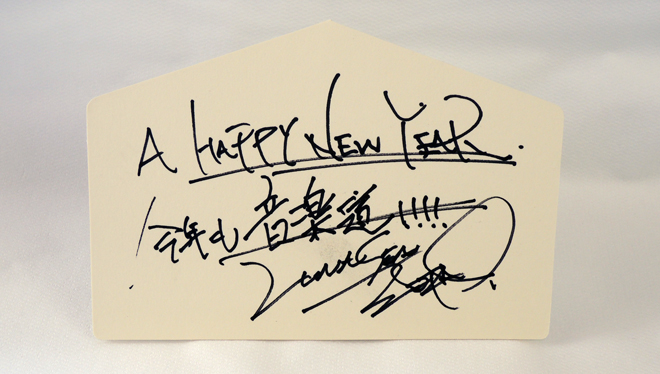 A HAPPY NEW YEAR.
今年も音楽道!!!!